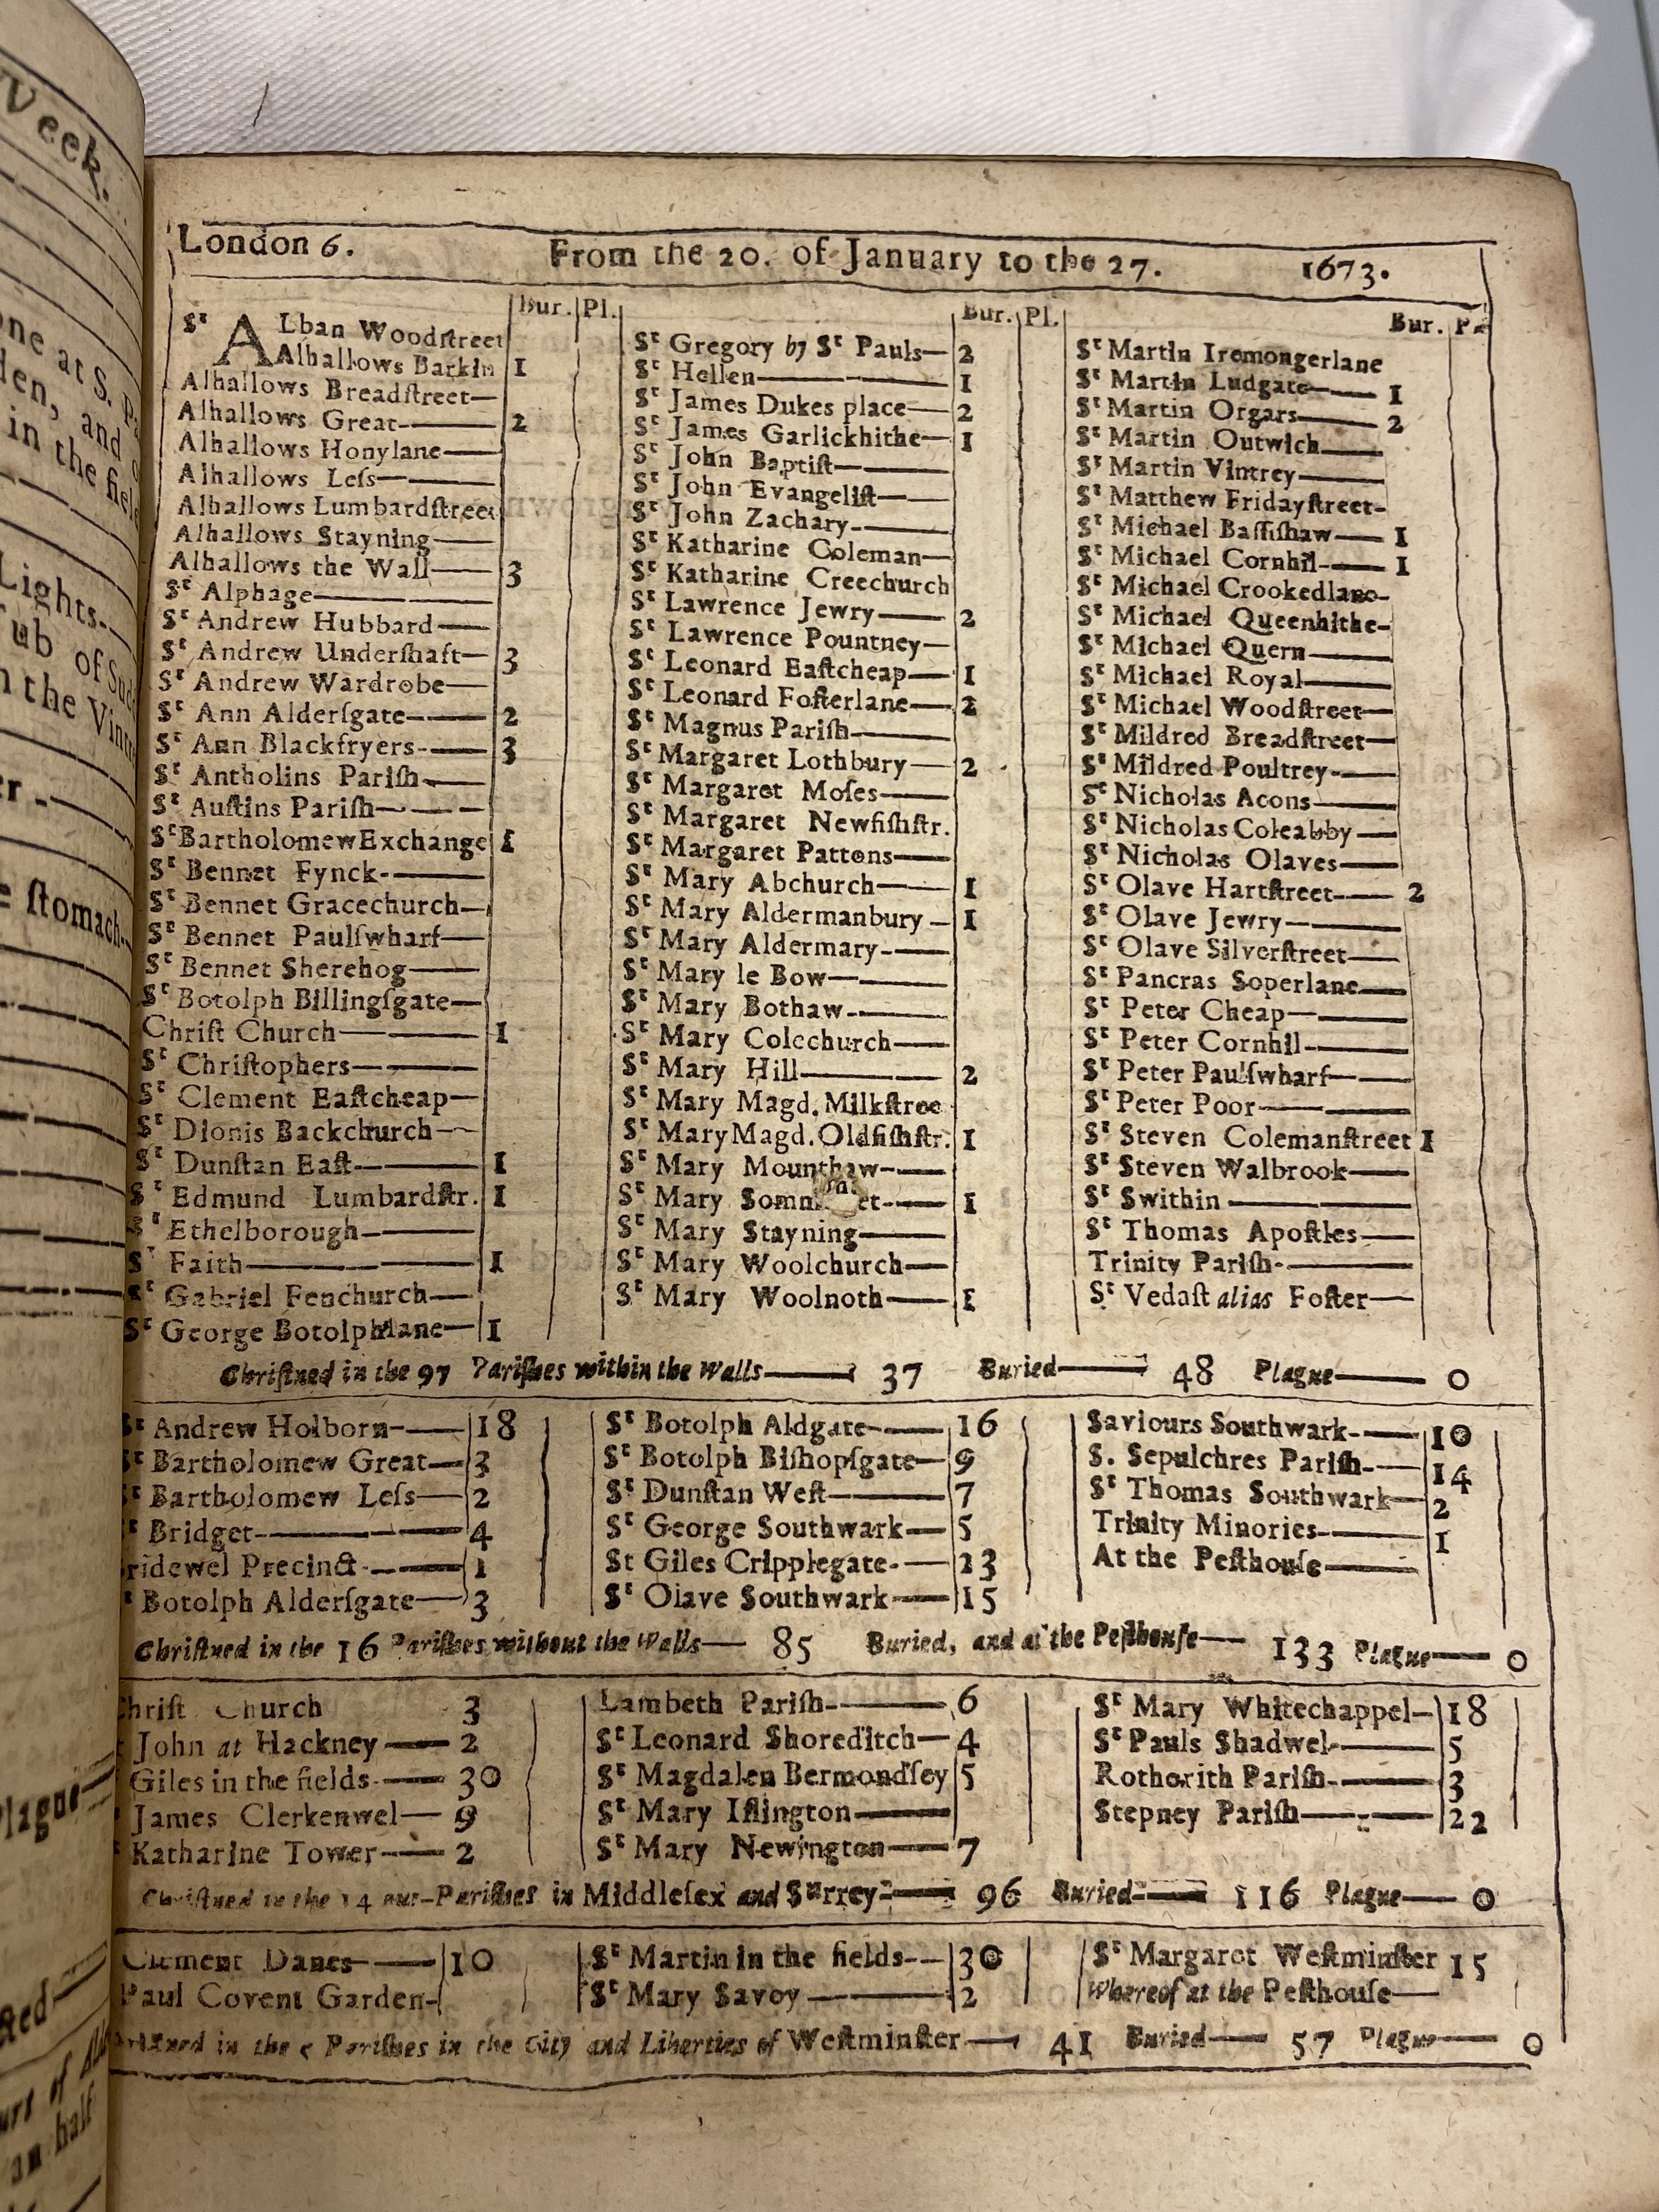 London 6. From the 20. of January to the 27. 1673.
Bur. Pl.
Sᵗ ALban Woodſtreet
Alhallows Barkin 1
Alhallows Breadſtreet—
Alhallows Great—— 2
Alhallows Honylane——
Alhallows Leſs——
Alhallows Lumbardſtreet
Alhallows Stayning——
Alhallows the Wall—— 3
Sᵗ Alphage——
Sᵗ Andrew Hubbard——
Sᵗ Andrew Underſhaft— 3
Sᵗ Andrew Wardrobe——
Sᵗ Ann Alderſgate—— 2
Sᵗ Ann Blackfryers-—— 3
Sᵗ Antholins Pariſh——
Sᵗ Auſtins Pariſh——
SᵗBartholomewExchange 1
Sᵗ Bennet Fynck-——
Sᵗ Bennet Gracechurch—
Sᵗ Bennet Paulſwharf——
Sᵗ Bennet Sherehog——
Sᵗ Botolph Billingſgate—
Chriſt Church—— 1
Sᵗ Chriſtophers——
Sᵗ Clement Eaſtcheap—
Sᵗ Dionis Backchurch—
Sᵗ Dunſtan Eaſt—— 1
Sᵗ Edmund Lumbardſtr. 1
Sᵗ Ethelborough——
Sᵗ Faith—— 1
Sᵗ Gabriel Fenchurch—
Sᵗ George Botolphlane— 1
Bur. Pl.
Sᵗ Gregory by Sᵗ Pauls— 2
Sᵗ Hellen—— 1
Sᵗ James Dukes place— 2
Sᵗ James Garlickhithe— 1
Sᵗ John Baptiſt——
Sᵗ John Evangeliſt——
Sᵗ John Zachary-——
Sᵗ Katharine Coleman—
Sᵗ Katharine Creechurch
Sᵗ Lawrence Jewry—— 2
Sᵗ Lawrence Pountney—
Sᵗ Leonard Eaſtcheap— 1
Sᵗ Leonard Foſterlane— 2
Sᵗ Magnus Pariſh——
Sᵗ Margaret Lothbury— 2
Sᵗ Margaret Moſes——
Sᵗ Margaret Newfiſhſtr.
Sᵗ Margaret Pattons——
Sᵗ Mary Abchurch—— 1
Sᵗ Mary Aldermanbury— 1
Sᵗ Mary Aldermary-——
Sᵗ Mary le Bow——
Sᵗ Mary Bothaw-——
Sᵗ Mary Colechurch——
Sᵗ Mary Hill—— 2
Sᵗ Mary Magd. Milkſtree
Sᵗ MaryMagd.Oldfiſhſtr. 1
Sᵗ Mary Mounthaw-——
Sᵗ Mary —— 1
Sᵗ Mary Stayning——
Sᵗ Mary Woolchurch——
Sᵗ Mary Woolnoth—— 1
Bur.
Sᵗ Martin Iremongerlane
Sᵗ Martin Ludgate—— 1
Sᵗ Martin Orgars—— 2
Sᵗ Martin Outwich——
Sᵗ Martin Vintrey——
Sᵗ Matthew Fridayſtreet-
Sᵗ Michael Baſſiſhaw—— 1
Sᵗ Michael Cornhil-—— 1
Sᵗ Michael Crookedlane-
Sᵗ Michael Queenhithe-
Sᵗ Michael Quern——
Sᵗ Michael Royal——
Sᵗ Michael Woodſtreet—
Sᵗ Mildred Breadſtreet—
Sᵗ Mildred Poultrey-——
Sᵗ Nicholas Acons——
Sᵗ Nicholas Coleabby——
Sᵗ Nicholas Olaves——
Sᵗ Olave Hartſtreet—— 2
Sᵗ Olave Jewry——
Sᵗ Olave Silverſtreet——
Sᵗ Pancras Soperlane——
Sᵗ Peter Cheap——
Sᵗ Peter Cornhil-——
Sᵗ Peter Paulſwharf——
Sᵗ Peter Poor——
Sᵗ Steven Colemanſtreet 1
Sᵗ Steven Walbrook——
Sᵗ Swithin——
Sᵗ Thomas Apoſtles——
Trinity Pariſh-——
Sᵗ Vedaſt alias Foſter—
Chriſtned in the 97 Pariſhes within the Walls—— 37 Buried—— 48 Plague—— 0
Sᵗ Andrew Holborn-—— 18
Sᵗ Bartholomew Great— 3
Sᵗ Bartholomew Leſs— 2
Bridget-—— 4
ridewel Precinct-—— 1
Botolph Alderſgate— 3
Sᵗ Botolph Aldgate-—— 16
Sᵗ Botolph Biſhopſgate— 9
Sᵗ Dunſtan Weſt—— 7
Sᵗ George Southwark— 5
St Giles Cripplegate-— 23
Sᵗ Olave Southwark—— 15
Saviours Southwark-—— 10
S. Sepulchres Pariſh-—— 14
Sᵗ Thomas Southwark— 2
Trinity Minories-—— 1
At the Peſthouſe——
Chriſtned in the 16 Pariſhes without the Walls—— 85 Buried, and at the Peſthouſe—— 133 Plague—— 0
hriſt Church 3
John at Hackney—— 2
Giles in the fields-—— 30
James Clerkenwel— 9
Katharine Tower-—— 2
Lambeth Pariſh-—— 6
Sᵗ Leonard Shoreditch— 4
Sᵗ Magdalen Bermondſey 5
Sᵗ Mary Iſlington——
Sᵗ Mary Newington—— 7
Sᵗ Mary Whitechappel— 18
Sᵗ Pauls Shadwel-—— 5
Rotherith Pariſh-—— 3
Stepney Pariſh—— 22
Chriſtned in the 14 out-Pariſhes in Middleſex and Surrey-—— 96 Buried-—— 116 Plague—— 0
Clement Danes—— 10
Paul Covent Garden-
Sᵗ Martin in the fields-- 30
Sᵗ Mary Savoy—— 2
Sᵗ Margaret Weſtminſter 15
Whereof at the Peſthouſe—
in the 5 Pariſhes in the City and Liberties of Weſtminſter—— 41 Buried—— 57 Plague—— 0
Week.
one at S.
den, and
in the
Lights-
Tub of
n the
ſtomach-
Plague—